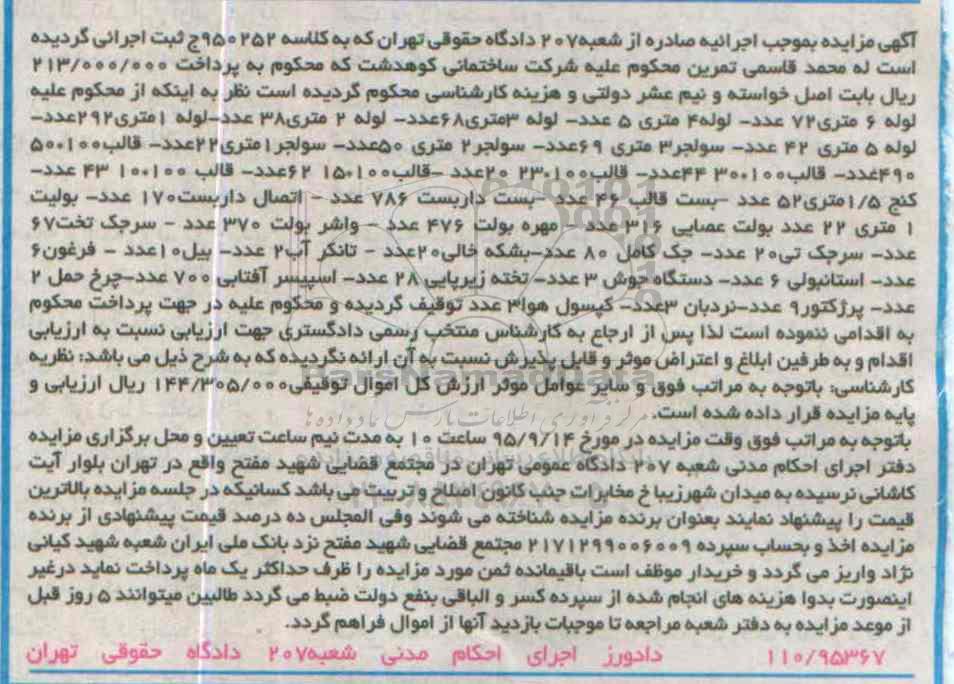 آگهی مزایده بموجب اجرائیه صادره از شعبه۲۰۷ دادگاه حقوقی تهران که به کلاسه ۹۵۰۲۵۲ج ثبت اجرائی گردیده
است له محمد قاسمی تمرین محکوم علیه شرکت ساختمانی کوهدشت که محکوم به پرداخت ۲۱۳/۰۰۰/۰۰۰
ریال بابت اصل خواسته و نیم عشر دولتی و هزینه کارشناسی محکوم گردیده است نظر به اینکه از محکوم علیه
لوله ۶ متری۷۲ عدد- لوله۴ متری ۵ عدد- لوله ۳متری۶۸عدد- لوله ۲ متری۳۸ عدد-لوله ۱متری۲۹۲عدد-
لوله ۵ متری ۴۲ عدد- سولجر۳ متری ۶۹عدد- سولجر۲ متری ۵۰عدد- سولجر۱متری۲۲عدد- قالب۱۰۰*۵۰
۴۹۰عدد- قالب۱۰۰*۳۰ ۴۴عدد- قالب۱۰۰*۲۳ ۲۰عدد -قالب۱۰۰*۱۵ ۶۲عدد- قالب ۱۰۰*۱۰ ۴۳ عدد-
کنج ۱/۵متری۵۲ عدد -بست قالب ۴۶ عدد -بست داربست ۷۸۶ عدد - اتصال داربست۱۷۰ عدد- بولیت
۱ متری ۲۲ عدد بولت عصایی ۳۱۶ عدد - مهره بولت ۴۷۶ عدد - واشر بولت ۳۷۰ عدد - سرجک تخت۶۷
عدد- سرجک تی۲۰ عدد- جک کامل ۸۰ عدد-بشکه خالی۲۰عدد - تانکر آب۲ عدد- بیل۱۰عدد - فرغون۶
عدد- استانبولی ۶ عدد- دستگاه جوش ۳ عدد- تخته زیرپایی ۲۸ عدد- اسپیسر آفتابی ۷۰۰ عدد-چرخ حمل ۲
عدد- پرژکتور۹ عدد-نردبان ۳عدد- کپسول هوا۳ عدد توقیف گردیده و محکوم علیه در جهت پرداخت محکوم
به اقدامی ننموده است لذا پس از ارجاع به کارشناس منتخب رسمی دادگستری جهت ارزیابی نسبت به ارزیابی
اقدام و به طرفین ابلاغ و اعتراض موثر و قابل پذیرش نسبت به آن ارائه نگردیده که به شرح ذیل می باشد: نظریه
کارشناسی: باتوجه به مراتب فوق و سایر عوامل موثر ارزش کل اموال توقیفی۱۴۴/۳۰۵/۰۰۰ ریال ارزیابی و
پایه مزایده قرار داده شده است.
باتوجه به مراتب فوق وقت مزایده در مورخ ۹۵/۹/۱۴ ساعت ۱۰ به مدت نیم ساعت تعیین و محل برگزاری مزایده
دفتر اجرای احکام مدنی شعبه ۲۰۷ دادگاه عمومی تهران در مجتمع قضایی شهید مفتح واقع در تهران بلوار آیت
کاشانی نرسیده به میدان شهرزیبا خ مخابرات جنب کانون اصلاح و تربیت می باشد کسانیکه در جلسه مزایده بالاترین
قیمت را پیشنهاد نمایند بعنوان برنده مزایده شناخته می شوند وفی المجلس ده درصد قیمت پیشنهادی از برنده
مزایده اخذ و بحساب سپرده ۲۱۷۱۲۹۹۰۰۶۰۰۹ مجتمع قضایی شهید مفتح نزد بانک ملی ایران شعبه شهید کیانی
نژاد واریز می گردد و خریدار موظف است باقیمانده ثمن مورد مزایده را ظرف حداکثر یک ماه پرداخت نماید درغیر
اینصورت بدوا هزینه های انجام شده از سپرده کسر و الباقی بنفع دولت ضبط می گردد طالبین میتوانند ۵ روز قبل
از موعد مزایده به دفتر شعبه مراجعه تا موجبات بازدید آنها از اموال فراهم گردد.
۱۱۰/۹۵۳۶۷ دادورز اجرای احکام مدنی شعبه۲۰۷ دادگاه حقوقی تهران